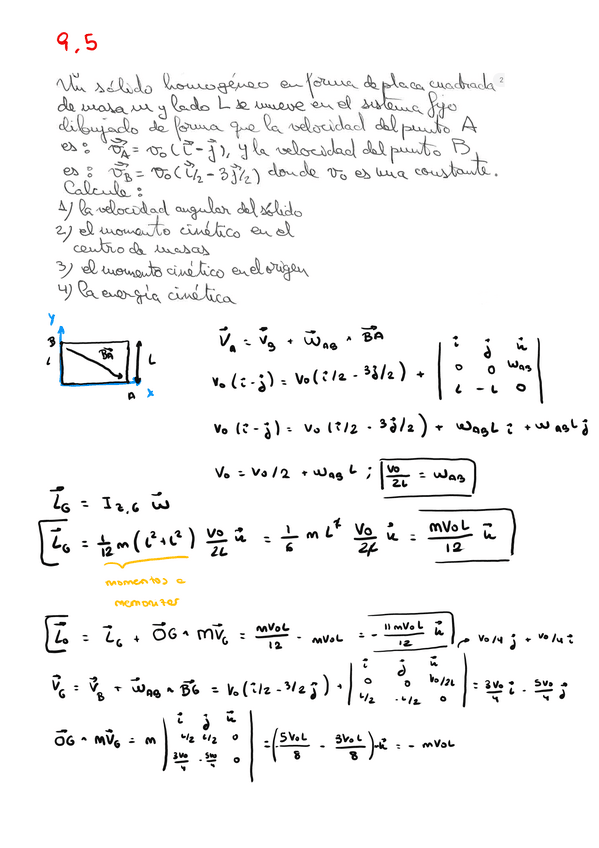 9,5
Un sólido homogéneo en forma de placa cuadrada
de masa m y lado L se mueve en el sistema fijo
dibujado de forma que la velocidad del punto A
es: v⃗_A = v₀(i⃗ - j⃗), y la velocidad del punto B
es: v⃗_B = v₀(i⃗/2 - 3j⃗/2) donde v₀ es una constante.
Calcule:
1) la velocidad angular del sólido
2) el momento cinético en el
centro de masas
3) el momento cinético en el origen
4) la energía cinética
y
B
BA
L
L
A
x
V⃗_A = V⃗_B + ω⃗_AB ∧ BA
V₀(i - j) = V₀(i/2 - 3j/2) + | i⃗ j⃗ u⃗ ; 0 0 ω_AB ; L -L 0 |
V₀(i - j) = V₀(i/2 - 3j/2) + ω_AB L i + ω_AB L j
V₀ = V₀/2 + ω_AB L ; V₀/2L = ω_AB
L⃗_G = I_z,G ω⃗
L⃗_G = 1/12 m(L²+L²) V₀/2L u⃗ = 1/6 m L² V₀/2L u⃗ = mV₀L/12 u⃗
momentos a
memorizar
L⃗₀ = L⃗_G + OG ∧ mV⃗_G = mV₀L/12 - mV₀L = - 11mV₀L/12 u⃗
V₀/4 j + V₀/4 i
V⃗_G = V⃗_B + ω⃗_AB ∧ BG = V₀(i/2 - 3/2 j) + | i⃗ j⃗ u⃗ ; 0 0 V₀/2L ; L/2 -L/2 0 | = 3V₀/4 i - 5V₀/4 j
OG ∧ mV⃗_G = m | i⃗ j⃗ u⃗ ; L/2 L/2 0 ; 3V₀/4 -5V₀/4 0 | = (-5V₀L/8 - 3V₀L/8) u⃗ = - mV₀L